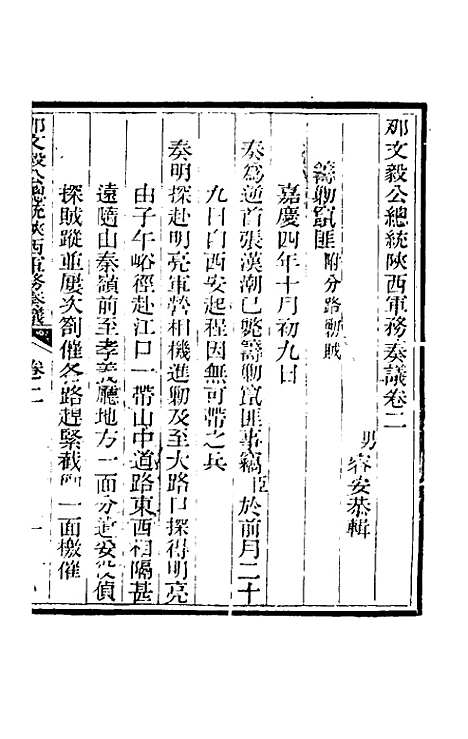 那文毅公總統陝西軍務奏議卷二
男容安恭輯
籌勦竄匪附分路斬賊
嘉慶四年十月初九日
奏爲逆首張漢潮已斃籌勦竄匪事竊臣於前月二十
九日自西安起程因無可帶之兵
奏明探赴明亮軍營相機進勦及至大路口探得明亮
由子午峪徑赴江口一帶山中道路東西相隔甚
遠隨山秦嶺前至孝義廳地方一面分遣妥役偵
探賊蹤並屢次劄催各路趕緊截勦一面檄催
那文毅公總統陝西軍務奏議
卷二
一